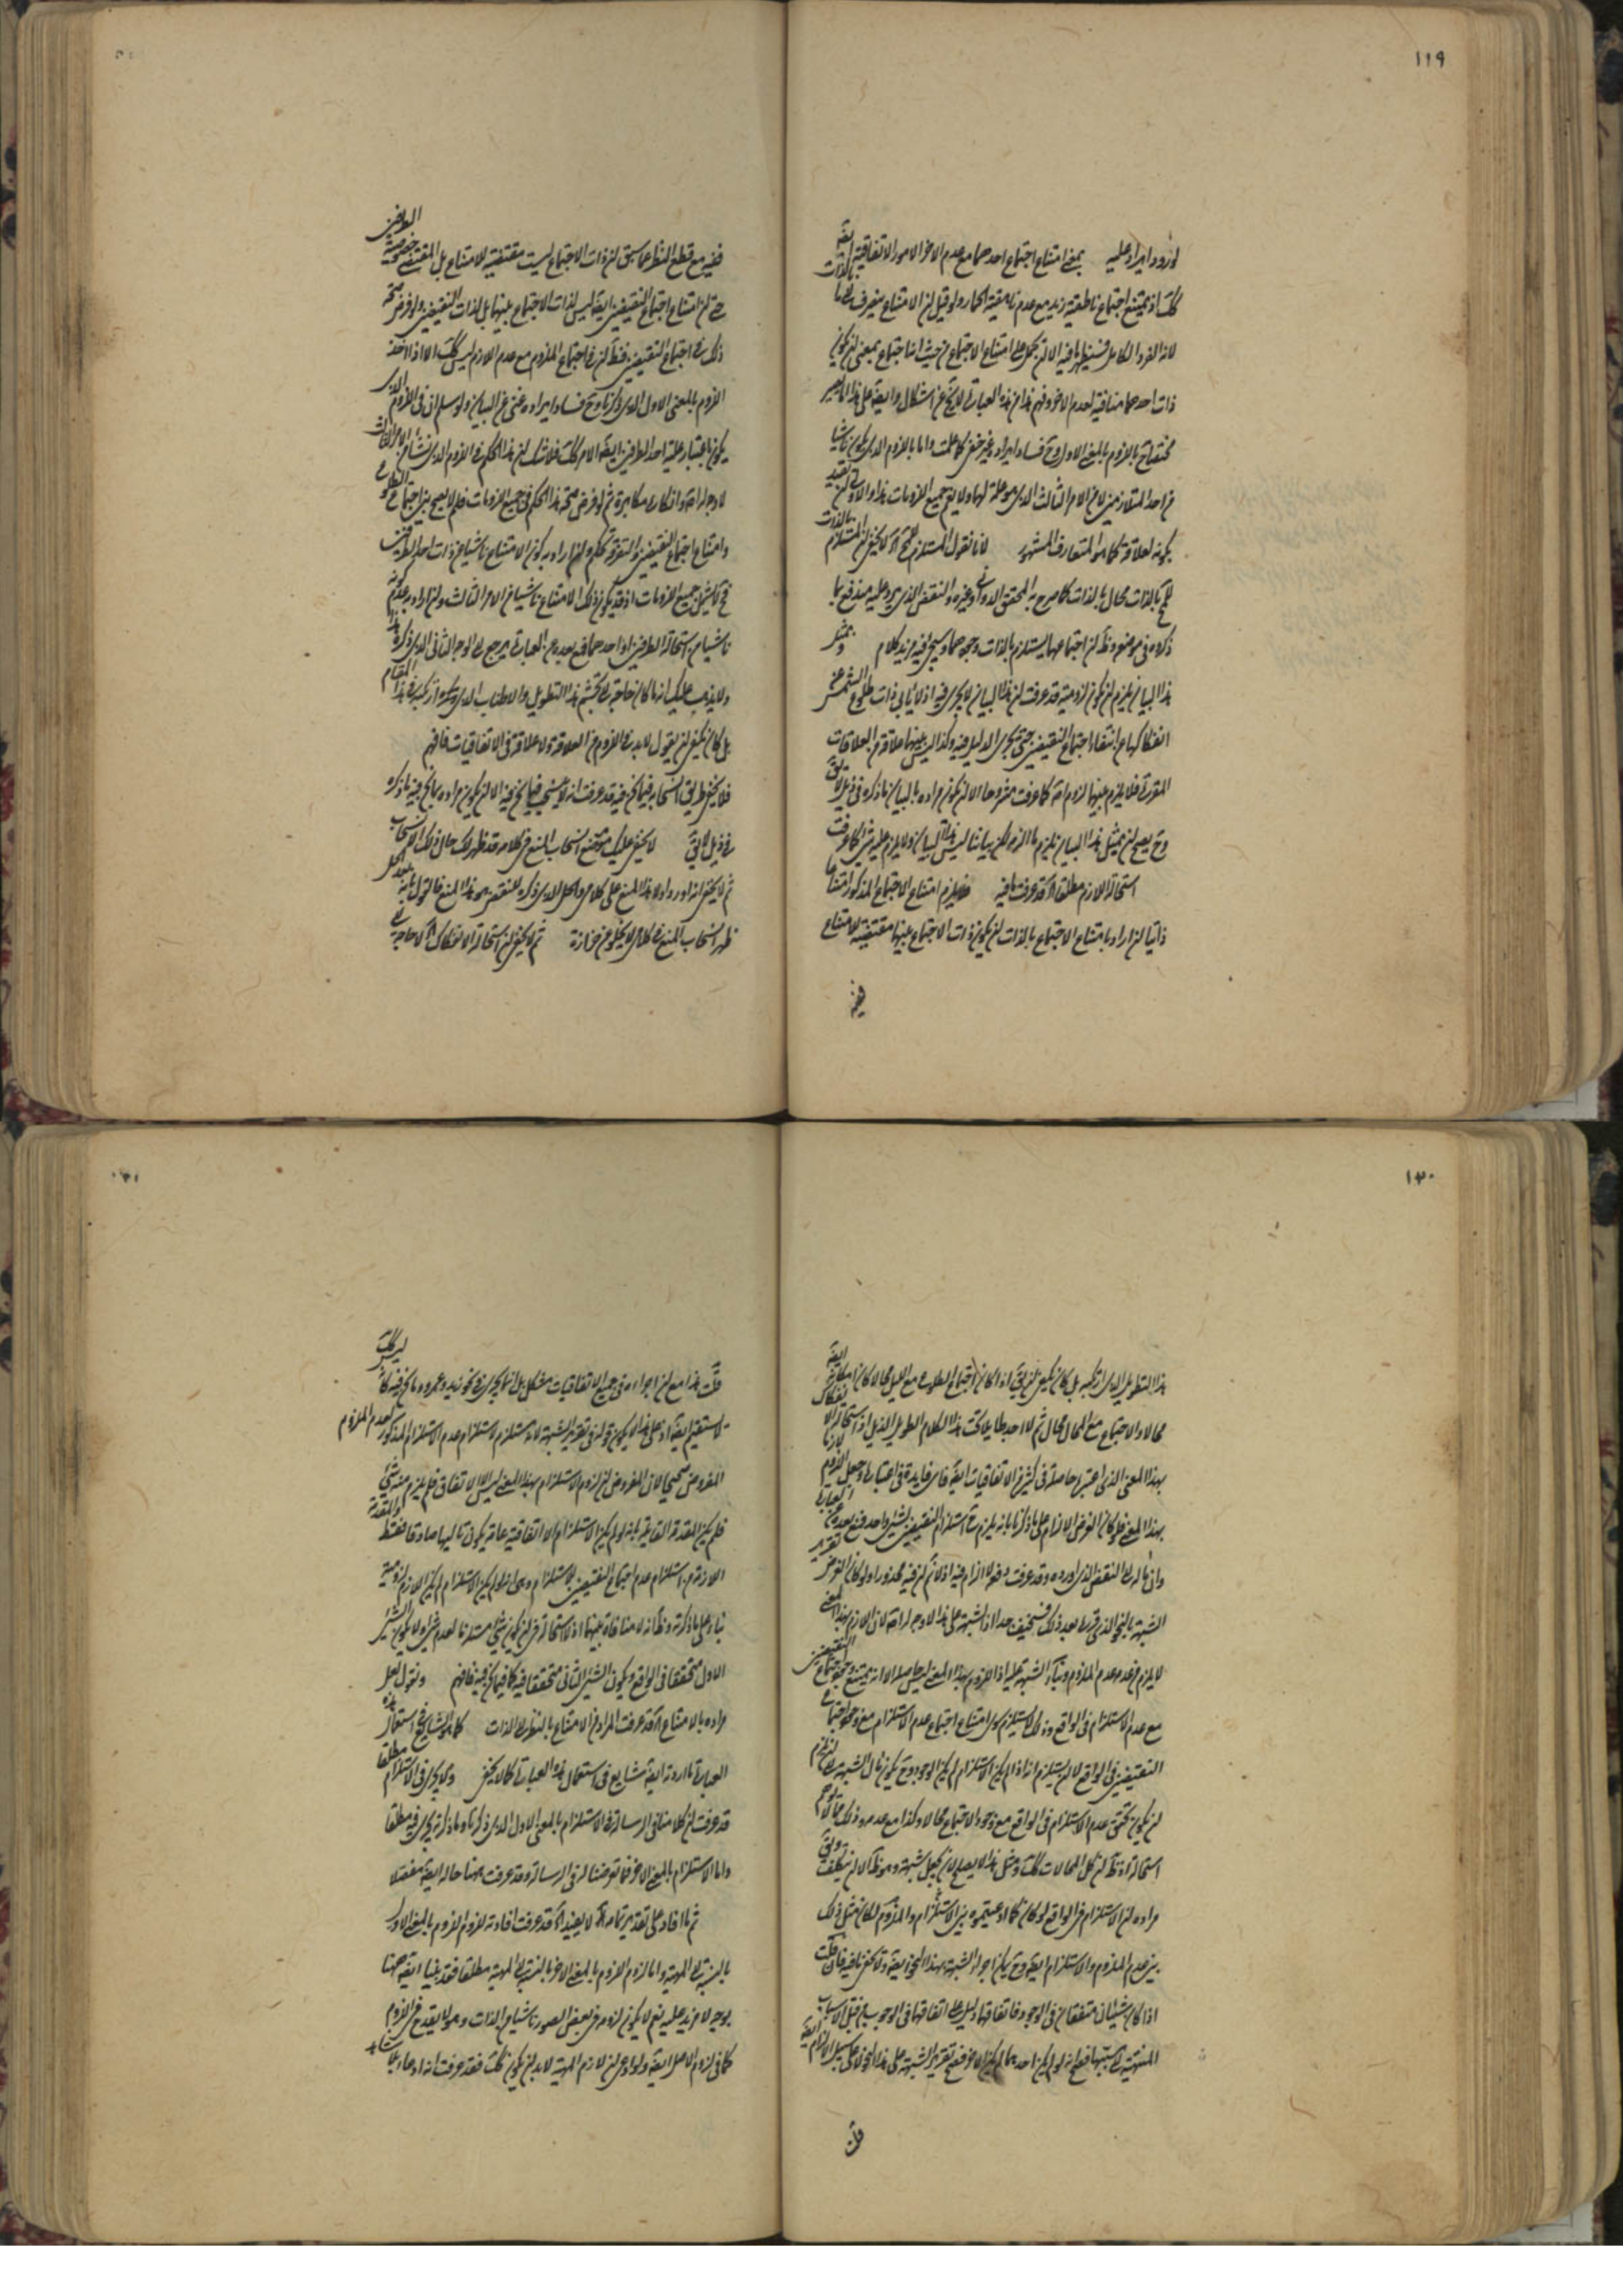 ١١٩
لورود ايراد عليه بمعنى امتناع اجتماع احدهما مع عدم الاخر الامور الاتفاقية ايضا
كك اذ يمتنع اجتماع ناطقية زيد مع عدم ناهقية الحمار ولو قيل ان الامتناع ينصرف الى ما بالذات
لانه الفرد الكامل فسيظهر ما فيه الا ان يحمل على امتناع الاجتماع من حيث انه اجتماع بمعنى ان يكون
ذات احدهما منافية لعدم الاخر وفهم هذا من هذه العبارة لا يخ عن اشكال وايضا على هذا الامر يصير
مختصا بح باللزوم بالمعنى الاول وح فساد ايراده غير خفى كما علمت واما باللزوم الذى يكون ناشيا
من احد المتلازمين لا من الامر الثالث الذى هو علة لهما ولا يعم جميع اللزومات هذا والاولى ان يقيد
بكونه لعلاقة كما هو المتعارف المشهور لانا نقول المستلزم للمح اه لا يخفى ان المستلزم بالذات
للمح بالذات محال بالذات كما صرح به المحقق الدوانى وغيره والنقض الذى يرد عليه مندفع بما
ذكروه فى موضعه وظ ان اجتماعهما يستلزم بالذات وجودهما وسيجئ فيه مزيد كلام وبمثل
هذا البيان يلزم ان يكون لزومية قد عرفت ان هذا البيان لا يجرى فيه اذ لا يابى ذات طلوع الشمس عن
انفكاكها عن انتفاء اجتماع النقيضين حتى يجرى الدليل فيه وكذا ليس بينهما علاقة من العلاقات
المقررة فلا يلزم بينهما لزوم اه كما عرفت مشروحا الا ان يكون مراده بالبيان ما ذكره فى ذيل لا يق
وح يصح ان بمثل هذا البيان يلزم ما الزم لكن بياننا ليس هذا البيان ولا يلزم عليه شئ كما عرفت
استحالة اللازم مطلقا اه قد عرفت ما فيه فيلزم امتناع الاجتماع المذكور امتناعا
ذاتيا ان اراد بامتناع الاجتماع بالذات ان يكون ذات الاجتماع بينهما مقتضية للامتناع
ففيه
ففيه مع قطع النظر عما سبق ان ذات الاجتماع ليست مقتضية للامتناع بل المقتضى خصوصية العوارض
حتى ان امتناع اجتماع النقيضين ايضا ليس لذات الاجتماع بينهما بل لذات النقيضين ولو فرض صحة
ذلك فى اجتماع النقيضين فنظ ان فى اجتماع الملزوم مع عدم اللازم ليس كك الا اذا اخذ
اللزوم بالمعنى الاول الذى ذكرنا وح فساد ايراده غنى عن البيان ولو سلم ان فى اللزوم الذى
يكون باعتبار علية احد الطرفين ايضا الامر كك فلا شك ان هذا الحكم فى اللزوم الذى نشأ من الامر الثالث
لا وجه له اه وانكاره مكابرة ثم لو فرض صحة هذا الحكم فى جميع اللزومات فلم لا يصح بين اجتماع الطلوع
وامتناع اجتماع النقيضين والتفرقة تحكم وان اراد به كون الامتناع ناشيا من ذات احد الطرفين
فح لا يشمل جميع اللزومات اذ قد يكون ذلك الامتناع ناشيا من الامر الثالث وان اراد به عدم كونه
ناشيا من استحالة الطرفين او احدهما فمع بعده من العبارة يرجع الى الوجه الثانى الذى ذكره هذا
ولا يذهب عليك انه ما كان حاجة الى تجشم هذا التطويل والاطناب الذى ارتكبه فى هذا المقام
بل كان يكفى ان يقول لابد فى اللزوم من العلاقة ولا علاقة فى الاتفاقيات فافهم
فلا يخفى طريق انسحابه فيما نحن فيه قد عرفت انه لا ينسحب فيما نحن فيه الا ان يكون مراده بما نحن فيه ما ذكره
فى ذيل لا يق لا يخفى عليك انسحاب المنع فى كلامه قد ظهر لك حال ذلك الانسحاب
ثم لا يخفى انه اورد اولا هذا المنع على كلامى والحل الذى ذكره للنقض هو هذا المنع فالقول بانه بعد الحل
ظهر انسحاب المنع فى كلامى لا يخلو عن حزازة ثم لا يخفى ان استحالة الانفكاك اه لا حاجة الى
١٢٠
هذا التطويل الذى ارتكبه بل كان يكفى ان يق اذا كان اجتماع الطلوع مع الليل محالا كان امكانه ايضا
محالا والاجتماع مع المحال محال ثم لا احد طايلا تحت هذا الكلام الطويل الذيل اذ استحالة الانفكاك
بهذا المعنى الذى اعتبرها حاصلة فى كثير من الاتفاقيات ايضا فاى فايدة فى اعتبارها وجعل اللزوم لازما
بهذا المعنى فلو كان الغرض الالزام على ما ذكرنا بانه يلزم ح استلزام النقيضين لشئ واحد فمع بعده عن العبارة
وانه مآله الى النقض الذى اورده وقد عرفت دفعه لا الزام فيه اذ لا نم ان فيه محذورا ولو كان الغرض تقرير
الشبهة بالنحو الذى قررها بعد ذلك فسخيف جدا اذ الشبهة على هذا لا وجه لها اه لان اللازم بهذا المعنى
لا يلزم من عدمه عدم الملزوم وبناء الشبهة عليه اذ اللزوم بهذا المعنى ليس حاصله الا انه يمتنع وجود اجتماع النقيضين
مع عدم الاستلزام فى الواقع وذلك لا يستلزم سوى امتناع اجتماع عدم الاستلزام مع وجود اجتماع
النقيضين فى الواقع لا ان يستلزم انه اذا لم يكن الاستلزام لم يكن الوجود وح يكون مآل الشبهة الى انه يلزم
ان يكون تحقق عدم الاستلزام فى الواقع مع وجود الاجتماع محالا وكذا مع عدمه وذلك مما لا توهم
استحالة اه اذ ظ ان كل المحالات كك ومثل هذا لا يصلح لان يجعل شبهة وهو ظ الا ان يتكلف ويق
مراده ان الاستلزام فى الواقع لو كان كما ادعيتموه بين الاستلزام والملزوم لكان مثل ذلك
بين عدم الملزوم والاستلزام ايضا وح يمكن اجراء الشبهة بهذا النحو ايضا ولا يخفى ما فيه فان قلت
اذا كان شيئان متفقان فى الوجود فاتفاقهما دليل على اتفاقهما فى الوجوب من قبل الاسباب
المنتهية اليه نسبتهما فصح انه لو لم يكن احدهما لم يكن الاخر فصح تقرير الشبهة على هذا النحو لا على سبيل الالزام ايضا
قلت
قلت هذا مع ان اجراءه فى جميع الاتفاقيات مشكل بل انما يجرى فى نحو زيد وعمرو وما نحن فيه ليس كك
لا يستقيم ايضا اذ على هذا لا يكون قوله فى تقرير الشبهة لانه يستلزم لاستلزام عدم الاستلزام المذكور لعدم الملزوم
المفروض صحيحا لان المفروض ان لزوم الاستلزام بهذا المعنى ليس الا الاتفاق فلم يلزم منه شئ
فلم يكن المقدمة القايلة بانه لو لم يكن الاستلزام الا اتفاقية عامة يكون تاليها صادقا فقط والمقدمة
اللازمة من استلزام عدم اجتماع النقيضين للاستلزام وهى انه لو لم يكن الاستلزام لم يكن اللازم لزومية
بناء على ما ذكرته وظ انه لا منافاة بينهما اذ لا استحالة فى ان يكون شئ مستلزما لعدم شئ ولا يكون الشئ
الاول متحققا فى الواقع ويكون الشئ الثانى متحققا فيه كما فيما نحن فيه فافهم ونقول لعل
مراده بالامتناع اه قد عرفت المراد من الامتناع بالنظر الى الذات كما هو الشايع فى استعمال هذه
العبارة ما اردته ايضا شايع فى استعمال هذه العبارة كما لا يخفى ولا يجرى فى الاستلزام مطلقا
قد عرفت ان كلامنا فى الرسالة فى الاستلزام بالمعنى الاول الذى ذكرنا وما ذكرته يجرى فيه مطلقا
واما الاستلزام بالمعنى الاخر فما تعرضنا له فى الرسالة وقد عرفت ههنا حاله ايضا مفصلا
ثم ما افاد على تقدير تمامه اه لا يفيد اه قد عرفت افادته للزوم اللزوم بالمعنى الاول
بالنسبة الى المهية واما لزوم اللزوم بالمعنى الاخر بالنسبة الى المهية مطلقا فقد بينا ايضا ههنا
بوجه لا مزيد عليه نعم لا يكون لزومه فى بعض الصور ناشيا من الذات وهو لا يقدح فى اللزوم
كما فى لزوم الاصل ايضا ولو ادعى ان لازم المهية لابد ان يكون كك فقد عرفت انه ادعاء بلا شاهد